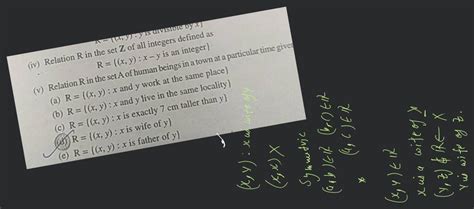 R = {(x, y) : y is divisible by x}
(iv) Relation R in the set Z of all integers defined as
R = {(x, y) : x – y is an integer}
(v) Relation R in the set A of human beings in a town at a particular time given
(a) R = {(x, y) : x and y work at the same place}
(b) R = {(x, y) : x and y live in the same locality}
(c) R = {(x, y) : x is exactly 7 cm taller than y}
(d) R = {(x, y) : x is wife of y}
(e) R = {(x, y) : x is father of y}
(x, y) : x wife of y
(y, x) X
Symmetric
(a, b) ∈ R (b, c) ∈ R
(a, c) ∈ R
x
(x, y) ∈ R
x is a wife of y
(y, z) ∈ R ← X
y is wife of z.